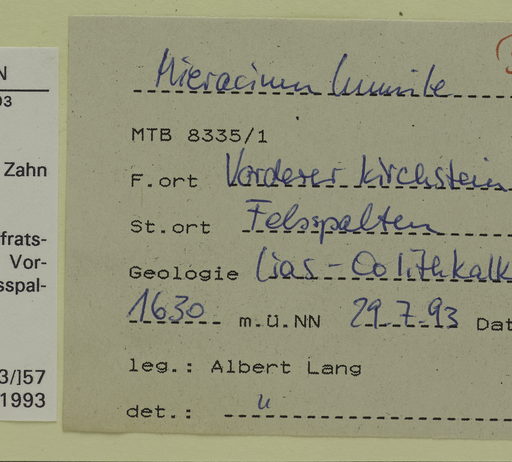 N
93
Zahn
frats-
Vor-
sspal-
3/]57
1993
Hieracium humile
MTB 8335/1
F.ort Vorderer Kirchstein
St.ort Felsspalten
Geologie Lias - Oolithkalk
1630 m.ü.NN 29.7.93 Dat
leg.: Albert Lang
det.: "